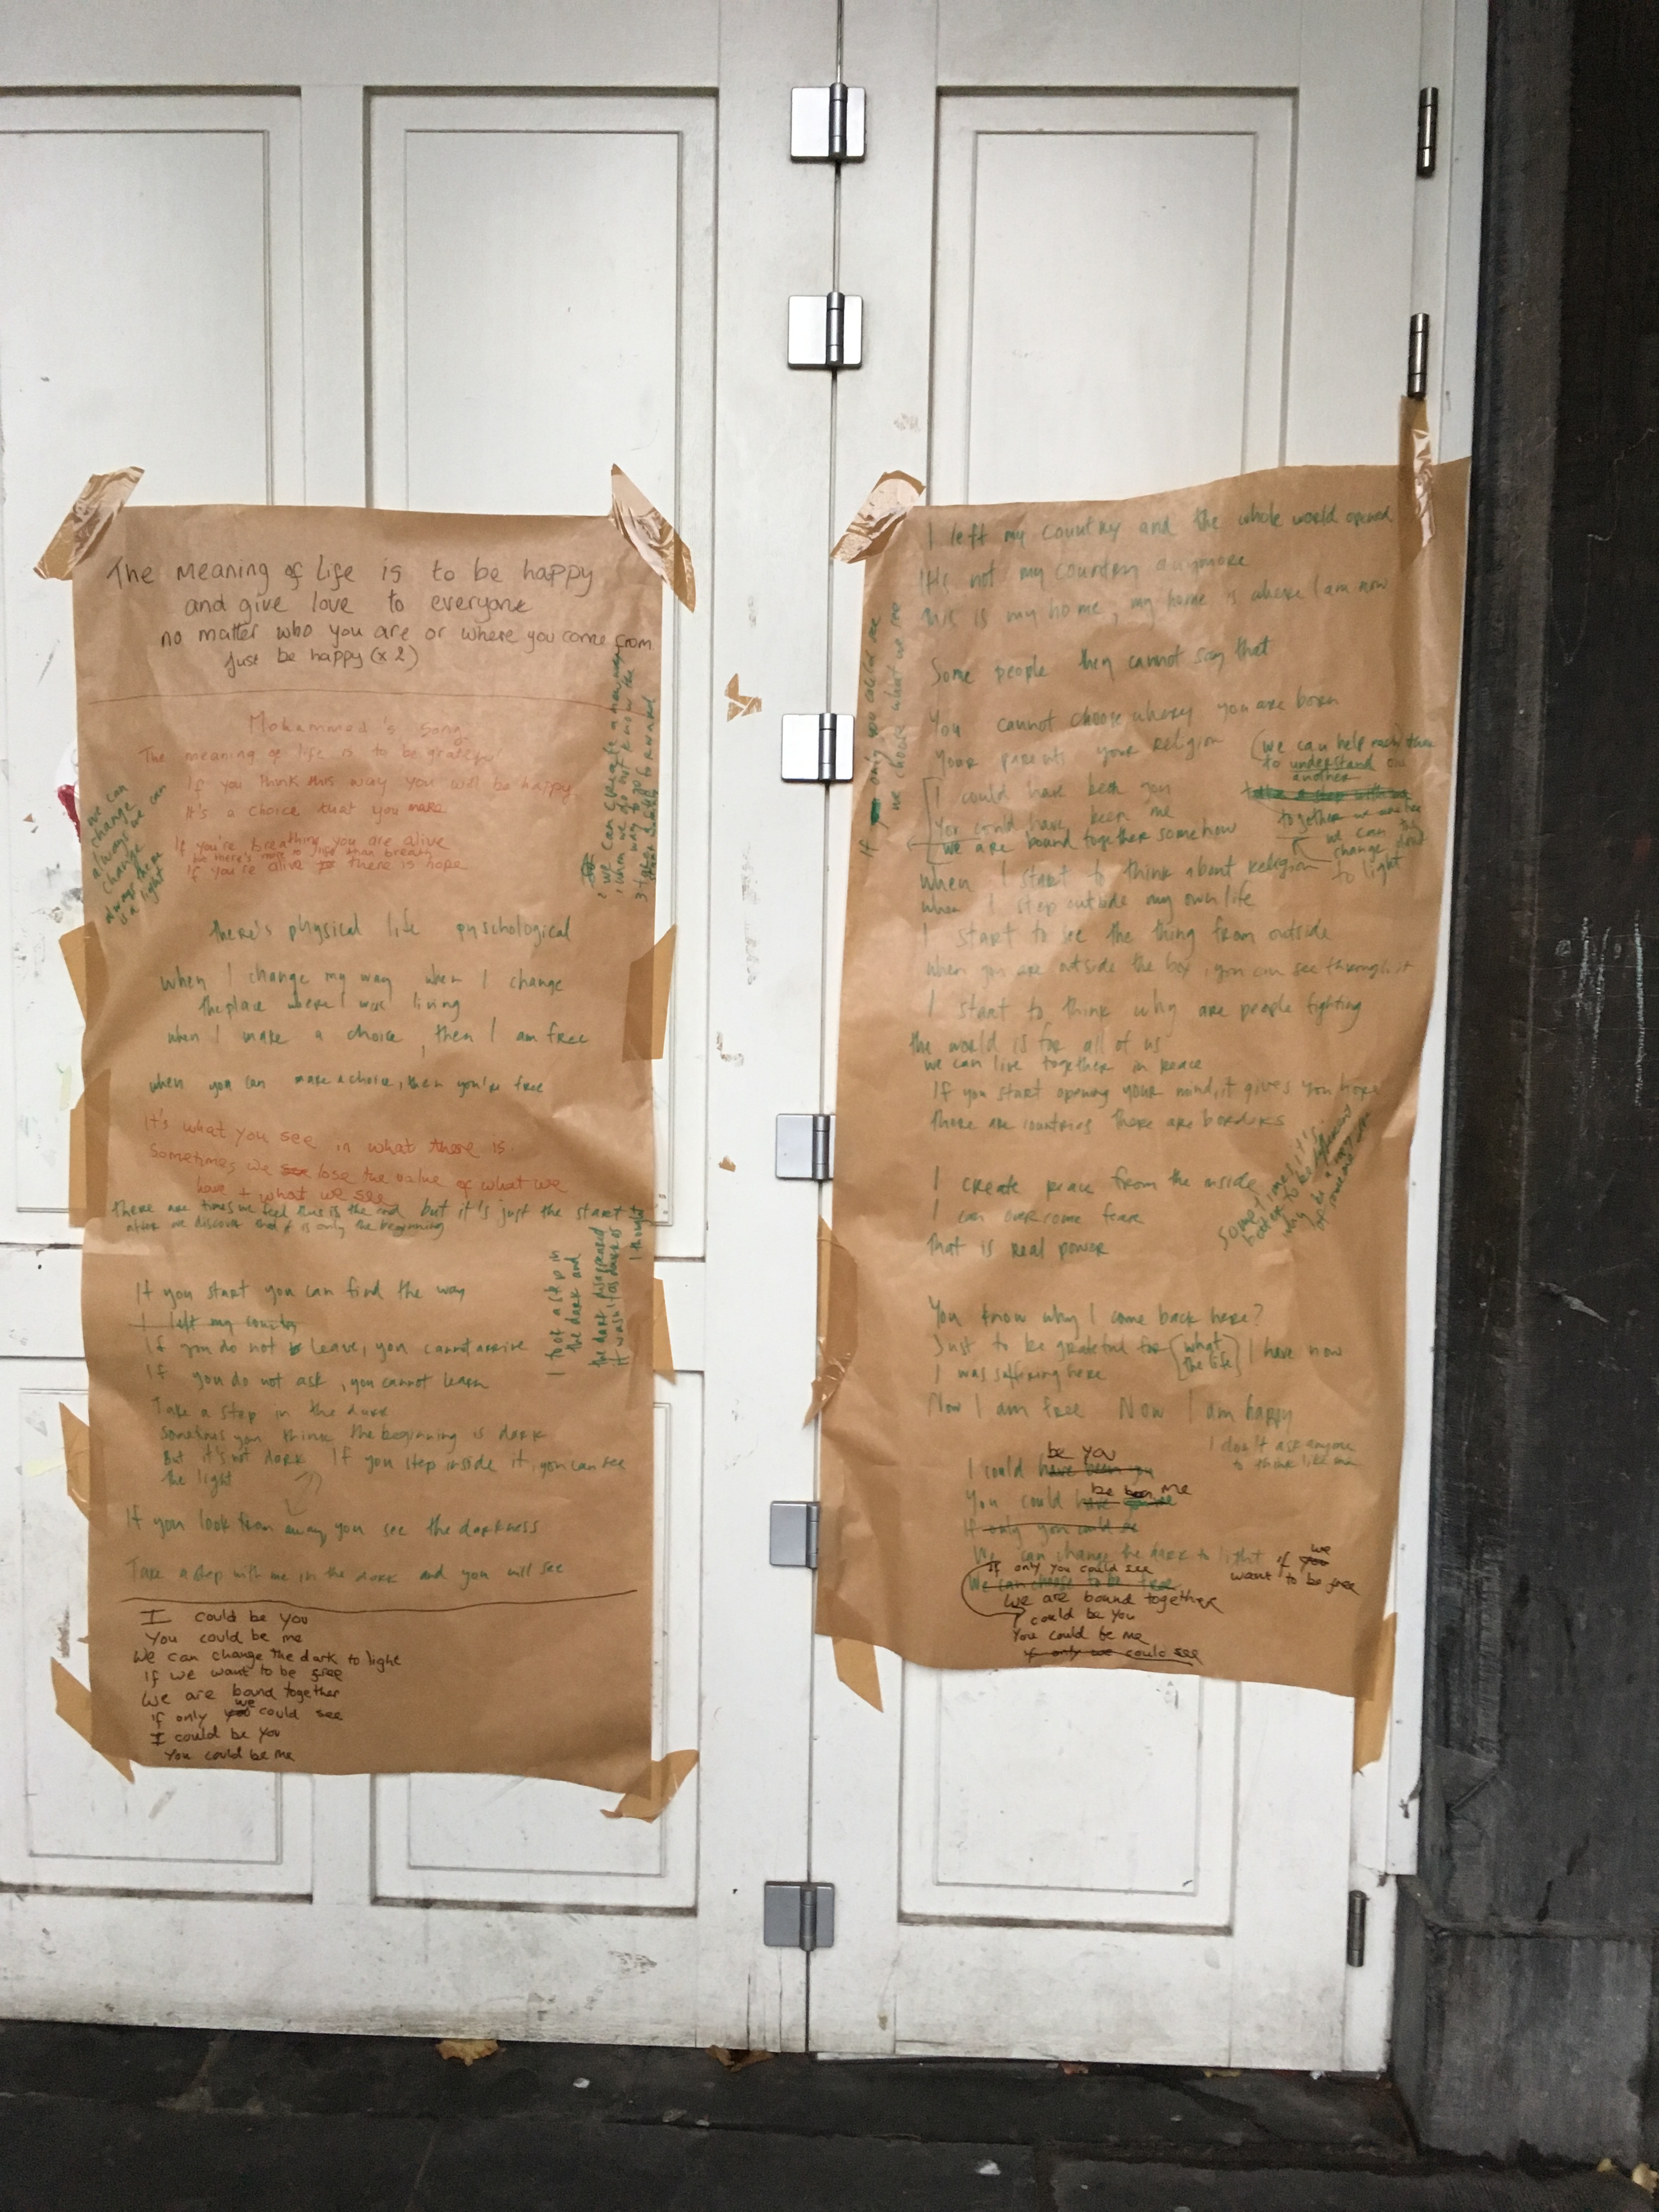 The meaning of life is to be happy
and give love to everyone
no matter who you are or where you come from
just be happy (x2)
Mohammed's Song
The meaning of life is to be grateful
If you think this way you will be happy
It's a choice that you make
If you're breathing you are alive
there's more to life than breath
If you're alive there is hope
we can
change
always we
change can
always there
is a light
2 we can create a new way
1 when we do not know the
way to go
3 take
forward
there's physical life pyschological
when I change my way when I change
the place where I was living
when I make a choice, then I am free
when you can make a choice, then you're free
It's what you see in what there is.
Sometimes we see lose the value of what we
have + what we see
There are times we feel this is the end but it's just the start
after we discover that it is only the beginning
I took a step in
the dark and
the dark disappeared
it wasn't as dark as
I thought
If you start you can find the way
I left my country
If you do not leave, you cannot arrive
If you do not ask, you cannot learn
Take a step in the dark
Sometimes you think the beginning is dark
But it's not dark If you step inside it, you can see
the light
If you look from away you see the darkness
Take a step with me in the dark and you will see
I could be you
You could be me
We can change the dark to light
If we want to be free
We are bound together
we
if only you could see
I could be you
You could be me
I left my country and the whole world opened
It's not my country anymore
this is my home, my home is where I am now
Some people they cannot say that
You cannot choose where you are born
Your parents your religion
(we can help each other
to understand one
another
take a step with me
together we
we can
change the dark
to light
If only you could see
we choose what we see
I could have been you
You could have been me
we are bound together somehow
when I start to think about religion
when I step outside my own life
I start to see the thing from outside
when you are outside the box, you can see through it
I start to think why are people fighting
the world is for all of us
we can live together in peace
If you start opening your mind, it gives you hope
There are countries there are borders
I create peace from the inside
I can overcome fear
That is real power
Sometimes it's
to be
You know why I come back here?
Just to be grateful for [what
the life] I have now
I was suffering here
Now I am free Now I am happy
I don't ask anyone
to think like me
be you
I could have been you
be been me
You could have
If only you could see
We can change the dark to light if you we
want to be free
If only you could see
We can choose to be free
We are bound together
I could be you
You could be me
If only we could see